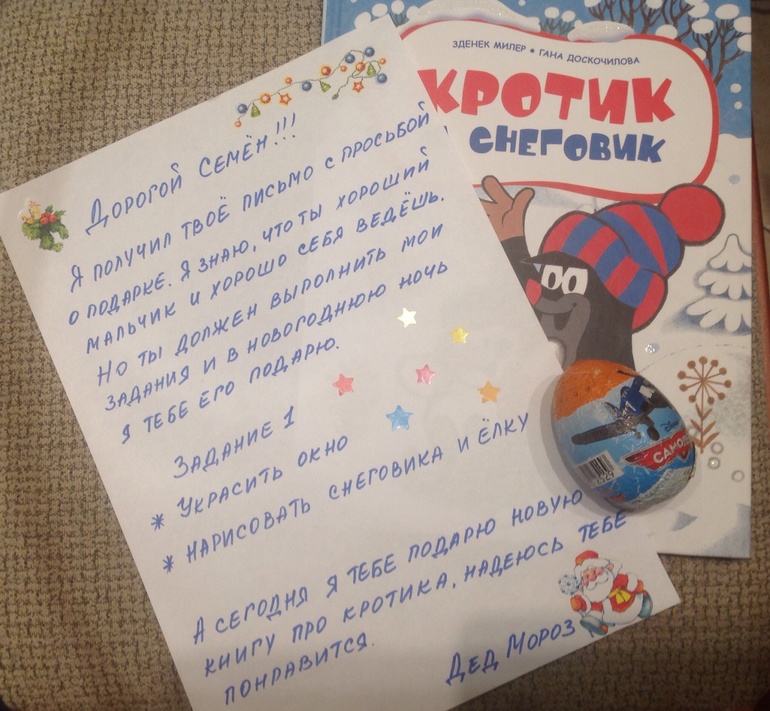 ЗДЕНЕК МИЛЕР • ГАНА ДОСКОЧИЛОВА
КРОТИК
СНЕГОВИК
ДОРОГОЙ СЕМЁН!!!
Я ПОЛУЧИЛ ТВОЁ ПИСЬМО С ПРОСЬБОЙ
О ПОДАРКЕ. Я ЗНАЮ, ЧТО ТЫ ХОРОШИЙ
МАЛЬЧИК И ХОРОШО СЕБЯ ВЕДЁШЬ.
НО ТЫ ДОЛЖЕН ВЫПОЛНИТЬ МОИ
ЗАДАНИЯ И В НОВОГОДНЮЮ НОЧЬ
Я ТЕБЕ ЕГО ПОДАРЮ.
ЗАДАНИЕ 1
* УКРАСИТЬ ОКНО
* НАРИСОВАТЬ СНЕГОВИКА И ЁЛКУ
А СЕГОДНЯ Я ТЕБЕ ПОДАРЮ НОВУЮ
КНИГУ ПРО КРОТИКА, НАДЕЮСЬ ТЕБЕ
ПОНРАВИТСЯ.
ДЕД МОРОЗ
Disney
САМОЛ